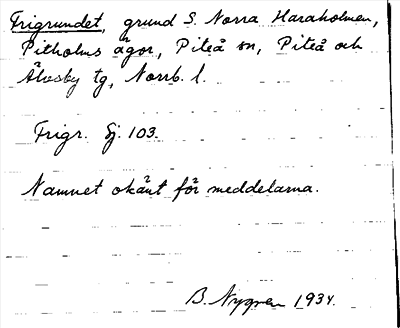 Frigrundet, grund S. Norra Haraholmen,
Pitholms ägor, Piteå sn, Piteå och
Älvsby tg, Norrb. l.
Frigr. Sj. 103.
Namnet okänt för meddelarna.
B. Nygren 1934.